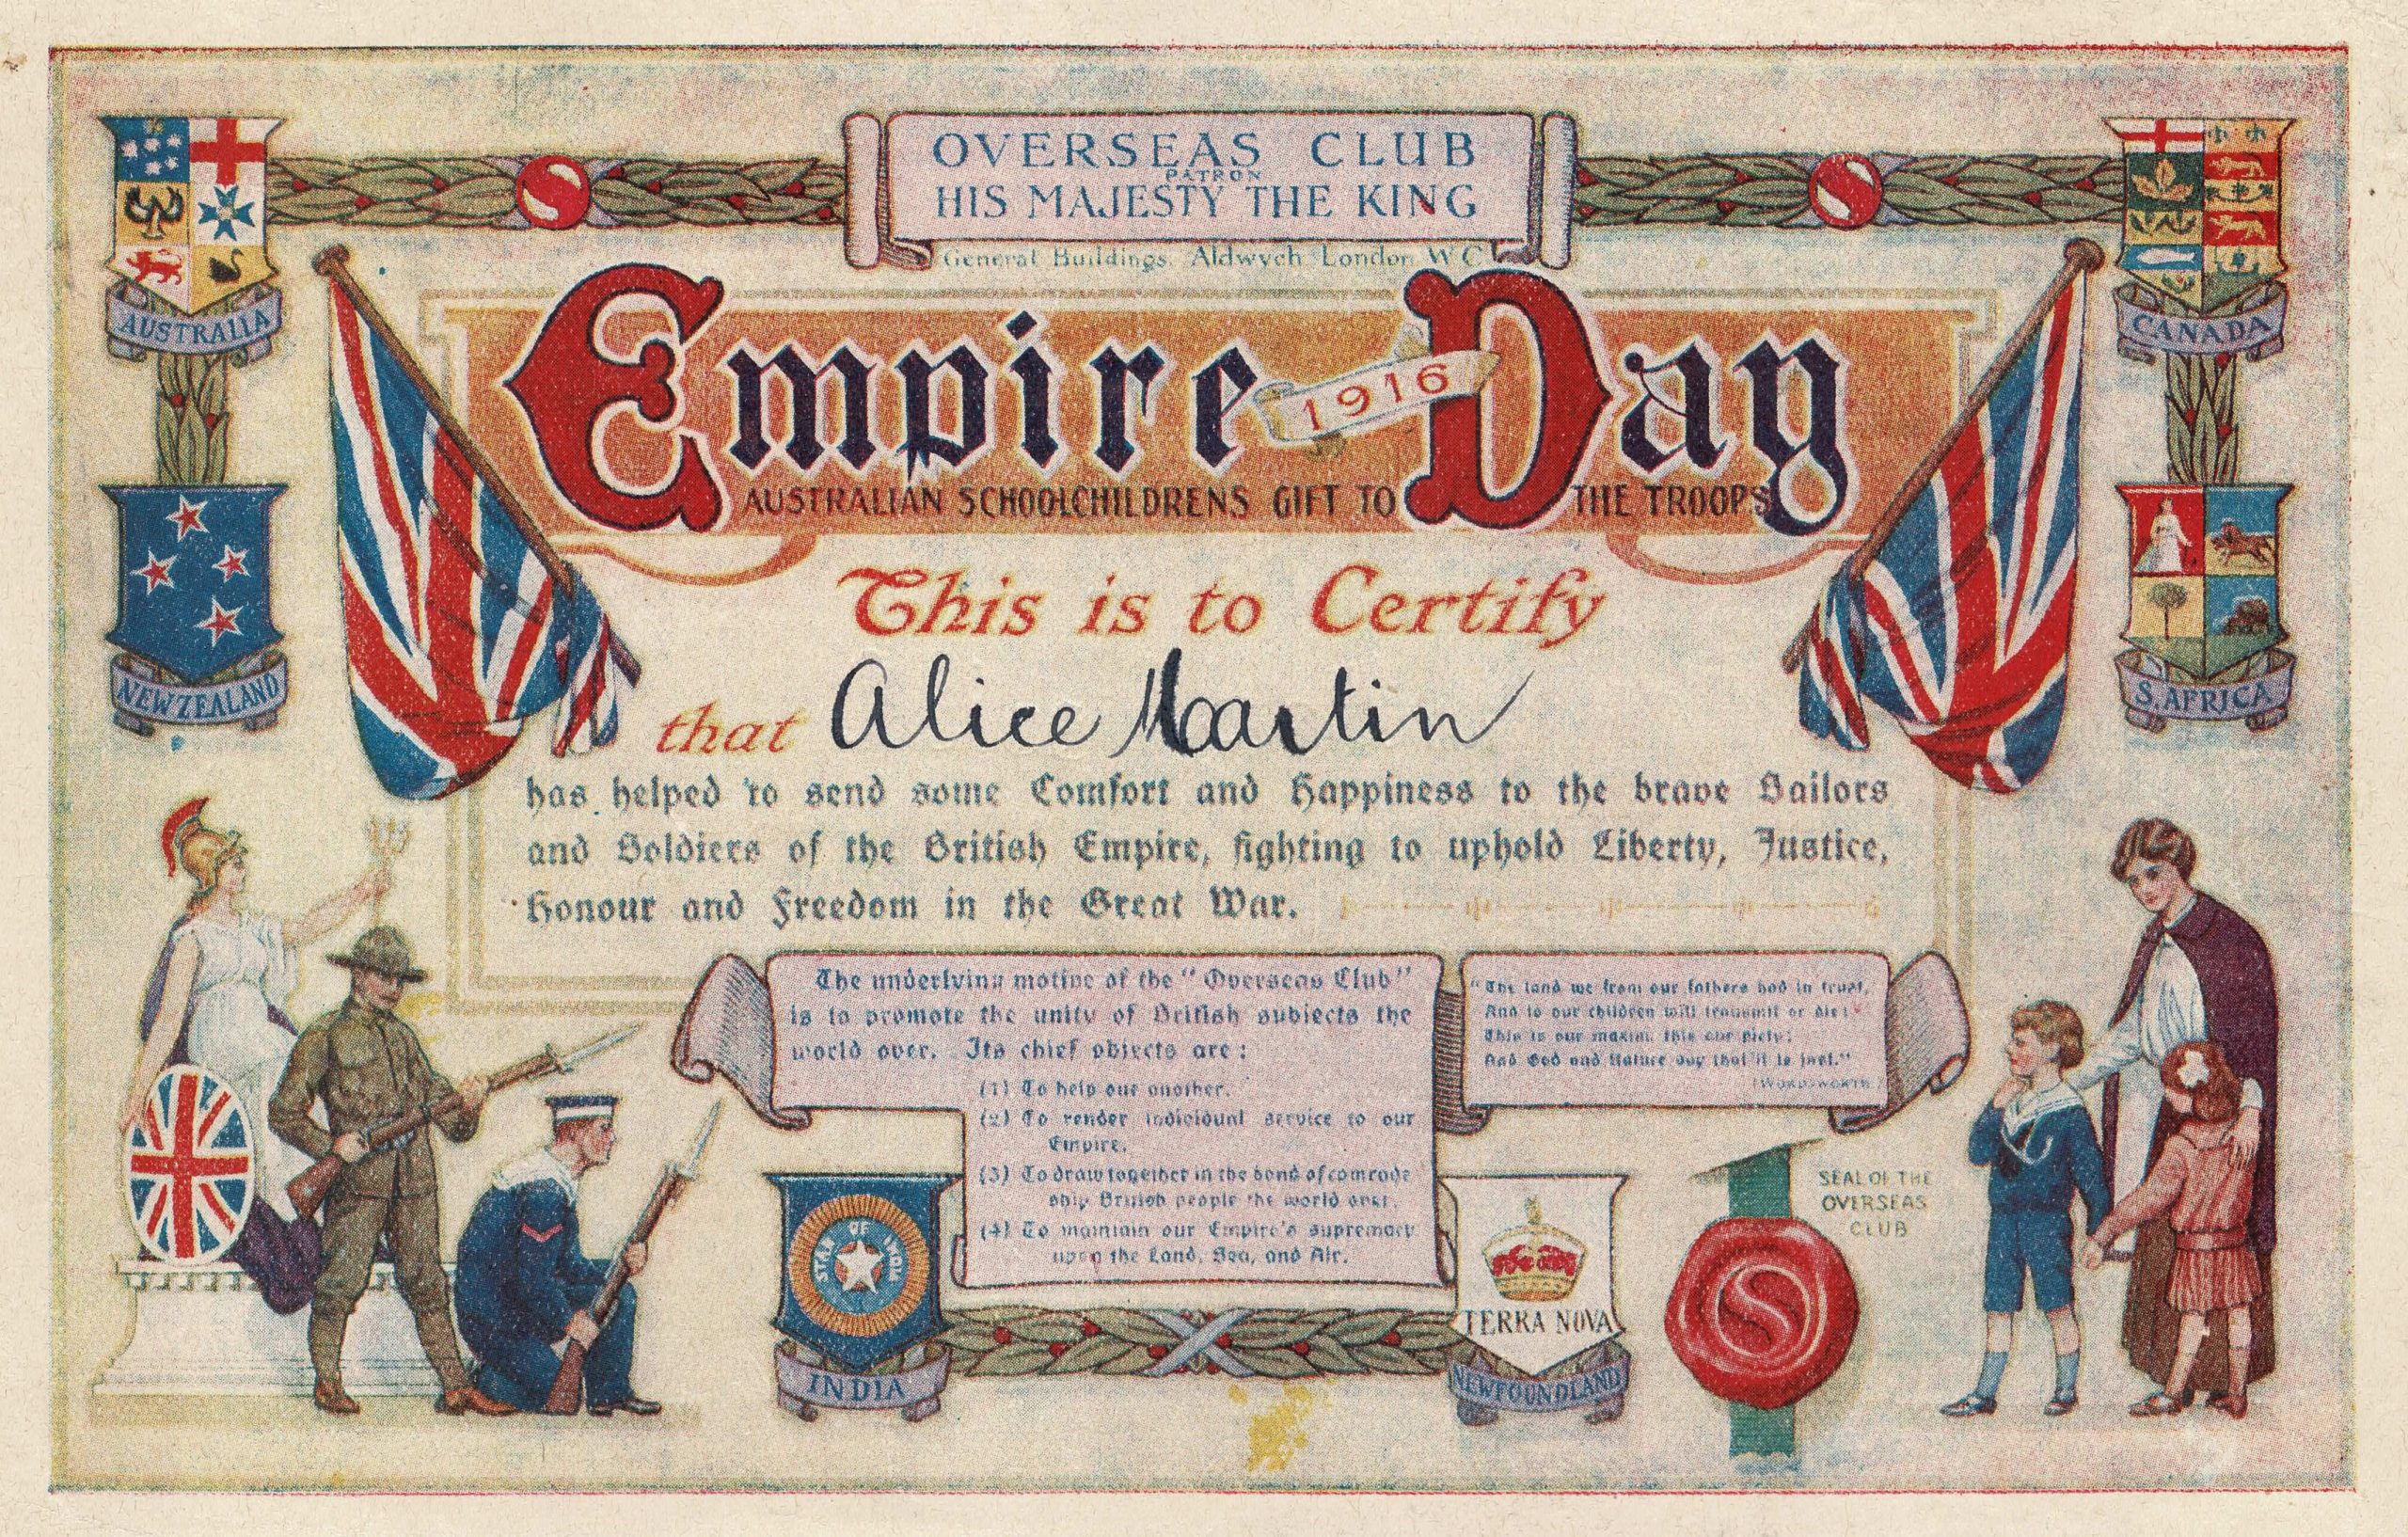 OVERSEAS CLUB
PATRON
HIS MAJESTY THE KING
General Buildings. Aldwych London W C
AUSTRALIA
CANADA
Empire Day
1916
AUSTRALIAN SCHOOLCHILDRENS GIFT TO THE TROOPS
NEW ZEALAND
S. AFRICA
This is to Certify
that Alice Martin
has helped to send some Comfort and Happiness to the brave Sailors
and Soldiers of the British Empire, fighting to uphold Liberty, Justice,
Honour and Freedom in the Great War.
The underlying motive of the "Overseas Club"
is to promote the unity of British subjects the
world over. Its chief objects are:
(1) To help one another.
(2) To render individual service to our
Empire.
(3) To draw together in the bond of comrade
ship British people the world over.
(4) To maintain our Empire's supremacy
upon the Land, Sea, and Air.
"The land we from our fathers had in trust,
And to our children will transmit or die:
This is our maxim, this our piety;
And God and Nature say that it is just."
(WORDSWORTH)
STAR OF INDIA
INDIA
TERRA NOVA
NEWFOUNDLAND
SEAL OF THE
OVERSEAS
CLUB